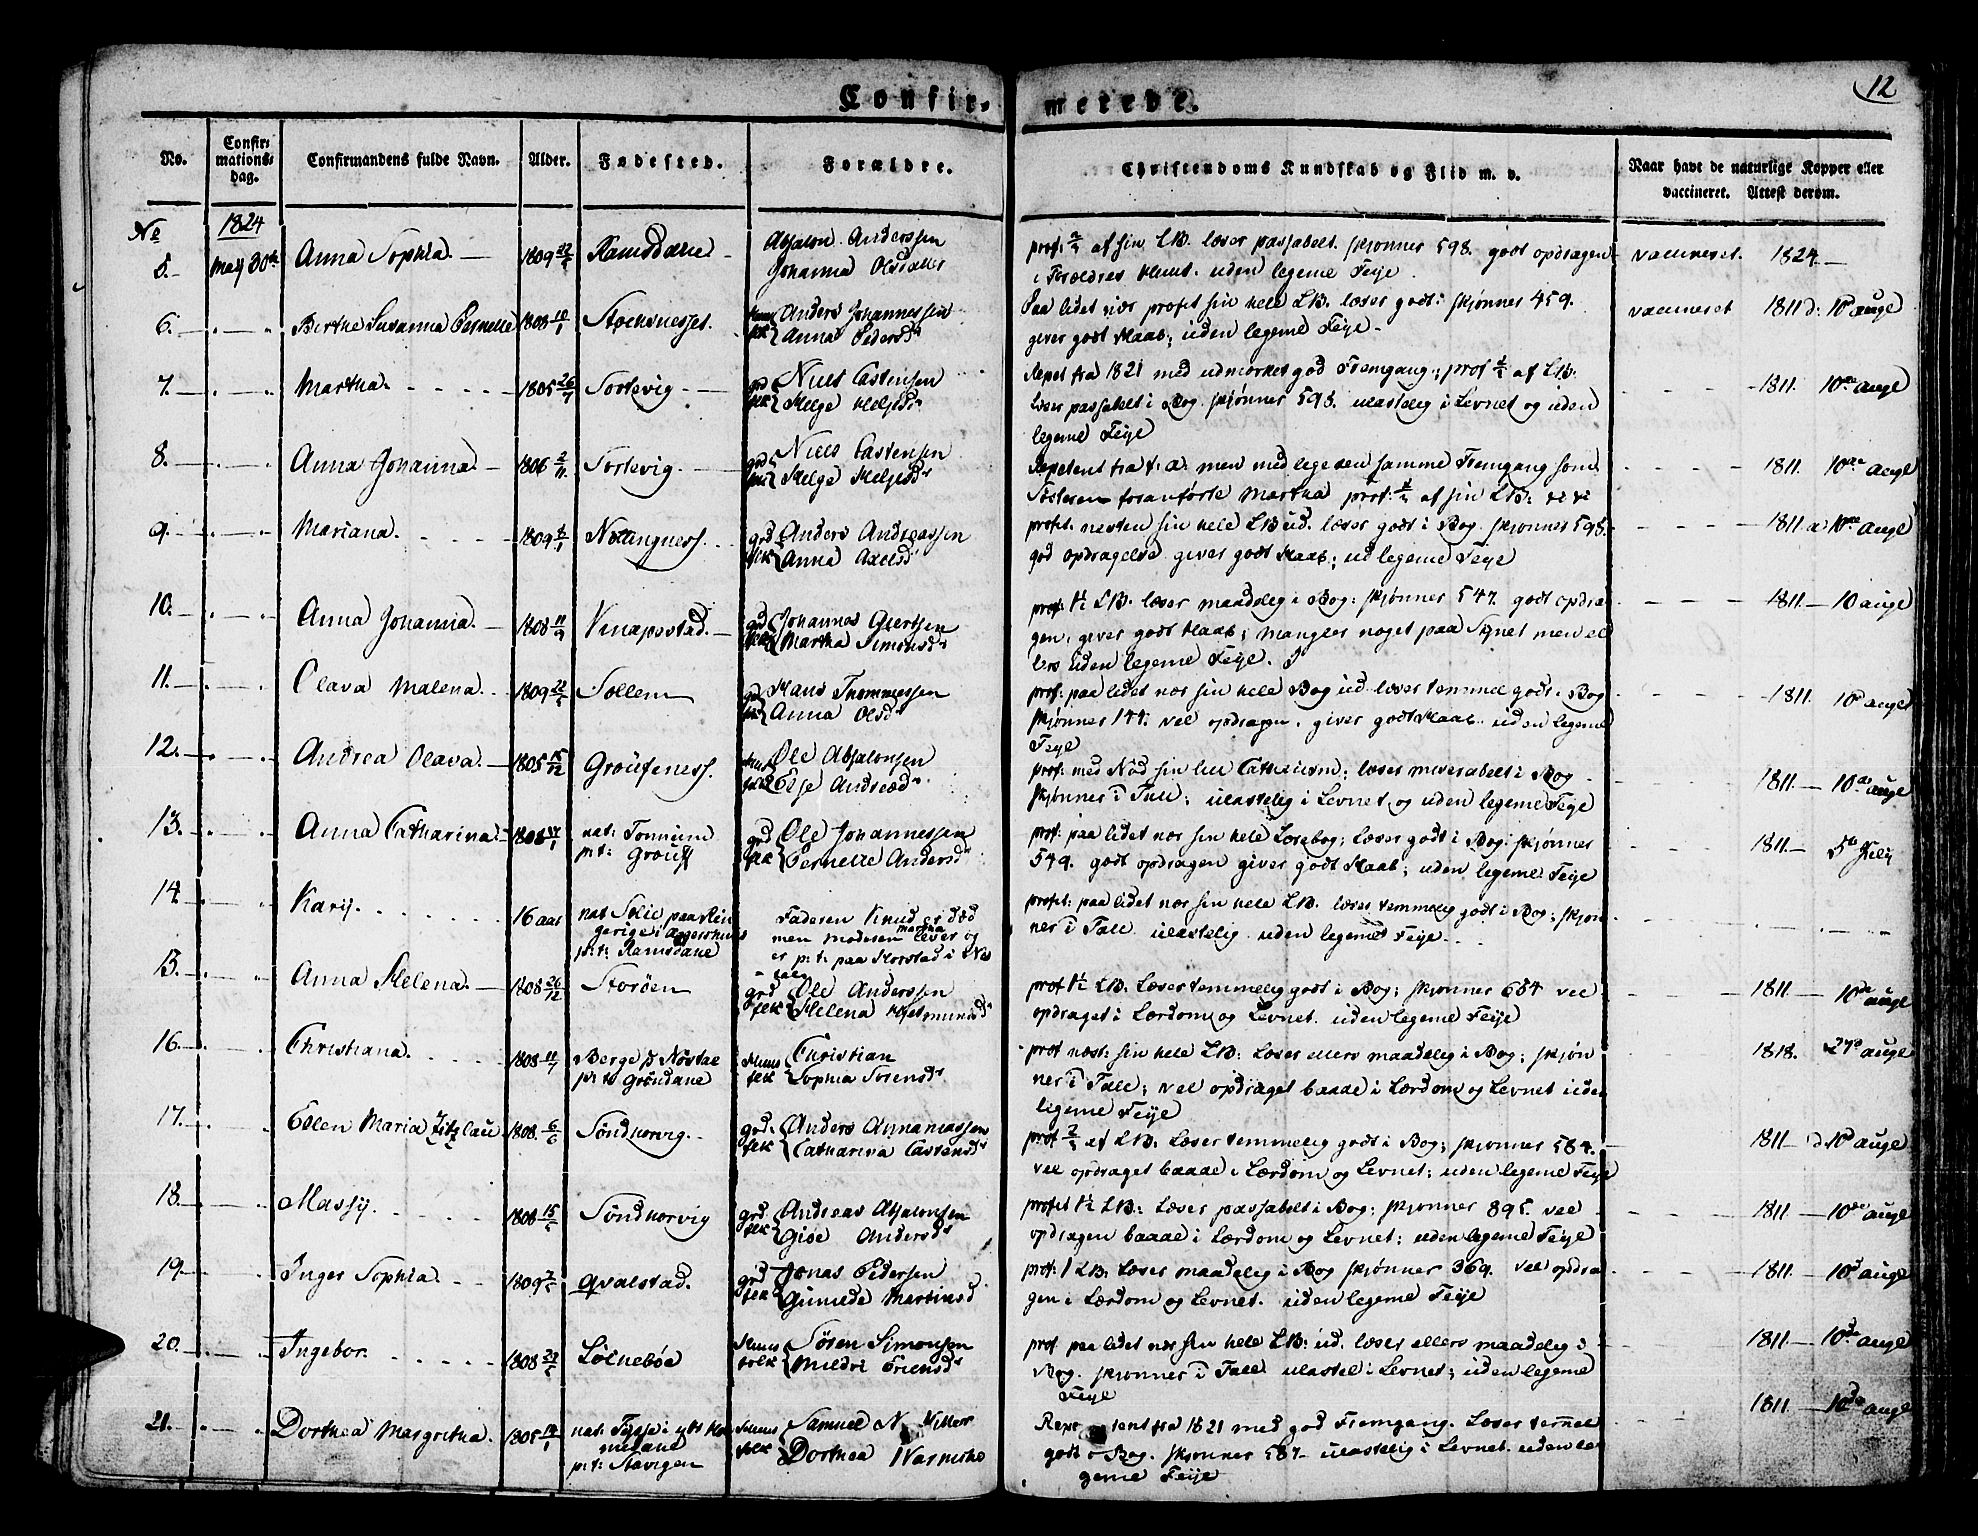 Confir- merede.
12
No.
Confir-
mations-
dag.
Confirmandens fulde Navn.
Alder.
Fødested.
Forældre.
Christendoms Kundskab og Flid m. v.
Naar havt de naturlige Kopper eller
vaccineret. Attest derom.
No 1824
5. May 30te Anna Sophia. 1809 Ramsdane Absalon Anderssen
Johanna Olsdatter
prof: 2/3 af sin LB. læser passabelt. skjønner 598. godt opdragen
i Forældres Huus. uden legeme Feije.
vaccineret. 1824
6. Birthe Susanna Pernelle 1808 10/1 Stochsnesset. Anders Johannessen
Anna Pedersdr
Paa lidet nær profit sin hele LB. læser godt: skjønner 459.
giver godt Haab; uden legeme Feije.
vaccineret 1811 d: 10d augl
7. Martha. 1805 26/7 Sortevig grd Niels Castensen
folk Helge Heljesdr
Repet fra 1821 med udmærket god Fremgang; prof 1/2 af LB.
læser passabelt i Bog. skjønner 598. ulastelig i Levnet og uden
legeme Feije
1811. 10de augl
8. Anna Johanna. 1806 2/11 Sortevig. grd Niels Castensen
Helge Heljesdr
Repetent fra f: a. men med legesen samme Fremgang som
Søsteren foranførte Martha prof: 1/2 af sin LB:
1811. 10de augl
9. Mariana. 1809 6/1 grd Anders Andreassen
folk Anna Axelsdr
profit. nesten sin hele LB ud. læser godt i Bog. skjønner 598.
god opdragelse giver godt Haab; ud legeme Feije
1811. 10de augl
10. Anna Johanna. 1808 11/9 Vinapostad. grd Johannes Giertsen
folk Martha Simonsdr
prof: 1 1/2 LB. læser maadelig i Bog: skjønner 547. godt opdra
gen, giver godt Haab; mangler noget paa Synet men el
lers uden legeme Feije.
1811. 10 augl
11. Olava Malena. 1809 Sollem grd Hans Thommessen
Anna Olsdr
prof: paa lidet nær sin hele Bog ud læser temmel godt i Bog
skjønner 144: vel opdragen. giver godt Haab uden legeme
Feije
1811. 10d augl
12. Andrea Olava. 1805 15/12 Groufeness. Ole Absalonsen
Else Andreædr
prof: med Nød sin lille Cathecism; læser miserabelt i Bog
skjønner i Tall; ulastelig i Levnet og uden legeme Feije
1811. 10de augl
13. Anna Catharina 1808 nat: Tonnum grd Ole Johannessen
p: t: folk Pernelle Andersdr
prof: paa lidet nær sin hele Lærebog; læser godt i Bog: skjønner
549. godt opdragen giver godt Haab; uden legeme Feije
1811. 5te July
14. Karij. 16 aar nat Solie paa Rin Faderen Knud er død
gerige i Aggershuus men moderen Martha lever og
p: t: Ramsdane er p: t: paa Horstad i
profit: paa lidet nær sin hele LB. læser temmelig godt i Bog; skjøn
ner i Tall. ulastelig uden legeme Feije.
15. Anna Helena. 1808 26/12 Storöen grd Ole Anderssen
folk Helena Asmundsdr
prof 1 1/2 LB. Læser temmelig godt i Bog; skjønner 684 vel
opdraget i Lærdom og Levnet. uden legeme Feije
1811. 10de augl
16. Christiana. 1808 11/7 Berge p Nøstae Huus Christian
p: t: Gröndane folk Sophia Sorensdr
prof næst: sin hele LB: Læser ellers maadelig i Bog; skjøn
ner i Tall; vel opdraget baade i Lærdom og Levnet uden
legeme Feije
1818. 27d augl
17. Ellen Maria Zitzlau 1808. 6/6 Söndhorvig grd. Anders Annaniassen
folk Catharina Castensdr
prof 2/3 af LB: Læser temmelig godt i Bog; skjønner 584.
vel opdraget baade i Lærdom og Levnet; uden legeme Feije
1811 10d augl
18. Massij. 1808 Söndhorvig grd. Andreas Absalonsen
folk Giöe Andersdr
profit 1 1/2 LB: Læser passabelt i Bog; skjønner 895. vel
opdragen baade i Lærdom og Levnet; uden legeme Feije
1811 10de augl
19. Inger Sophia. 1809 Qvalstad. grd Jonas Pedersen
folk Gunilde Martinsd
prof: 1 LB. Læser maadelig i Bog skjønner 369. vel opdra
gen i Lærdom og Levnet. uden legeme Feije
1811. 10d augl
20. Ingebor. 1808 Lölneböe Huus Sören Simonsen
folk Mildri Eriensdr
prof. paa lidet nær sin hele LB: ud. læser ellers maadelig i
Bog. skjønner i Tall ulastel i Levnet; uden legeme
Feije
1811. 10de augl
21. Dorthea Margretha. 1805 nat: i Huus Samuel N
folk Dorthea Warncke
p: t: Stavigen
Repe tent fra 1821 med god Fremgang. Læser temmel
godt i Bog. skjønner 587- ulastelig i Levnet. uden le
geme Feije
1811 10de augl